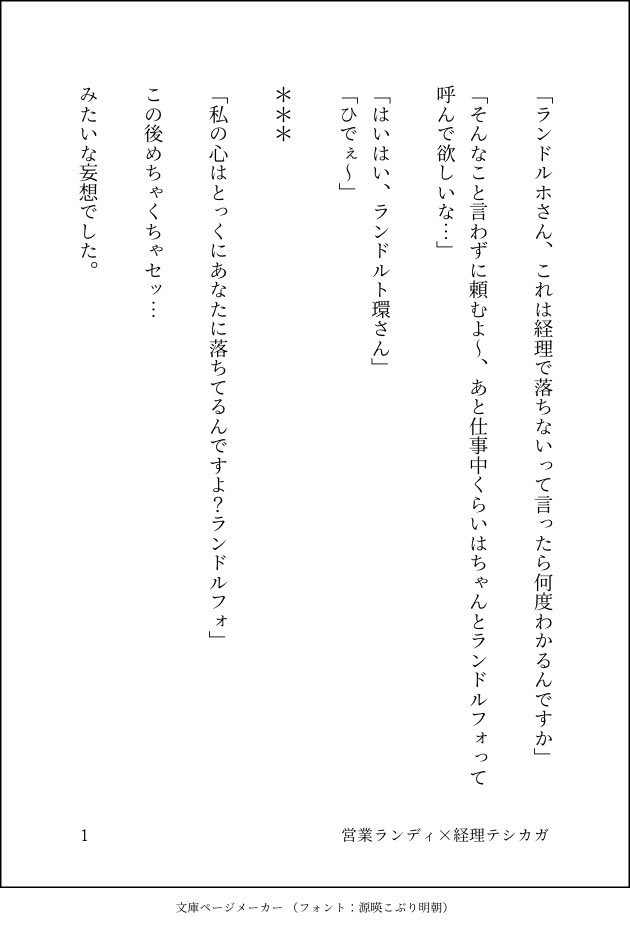 「ランドルホさん、これは経理で落ちないって言ったら何度わかるんですか」
「そんなこと言わずに頼むよ〜、あと仕事中くらいはちゃんとランドルフォって
呼んで欲しいな…」
「はいはい、ランドルト環さん」
「ひでぇ〜」
＊＊＊
「私の心はとっくにあなたに落ちてるんですよ？ランドルフォ」
この後めちゃくちゃセッ…
みたいな妄想でした。
営業ランディ×経理テシカガ
1
文庫ページメーカー （フォント：源暎こぶり明朝）